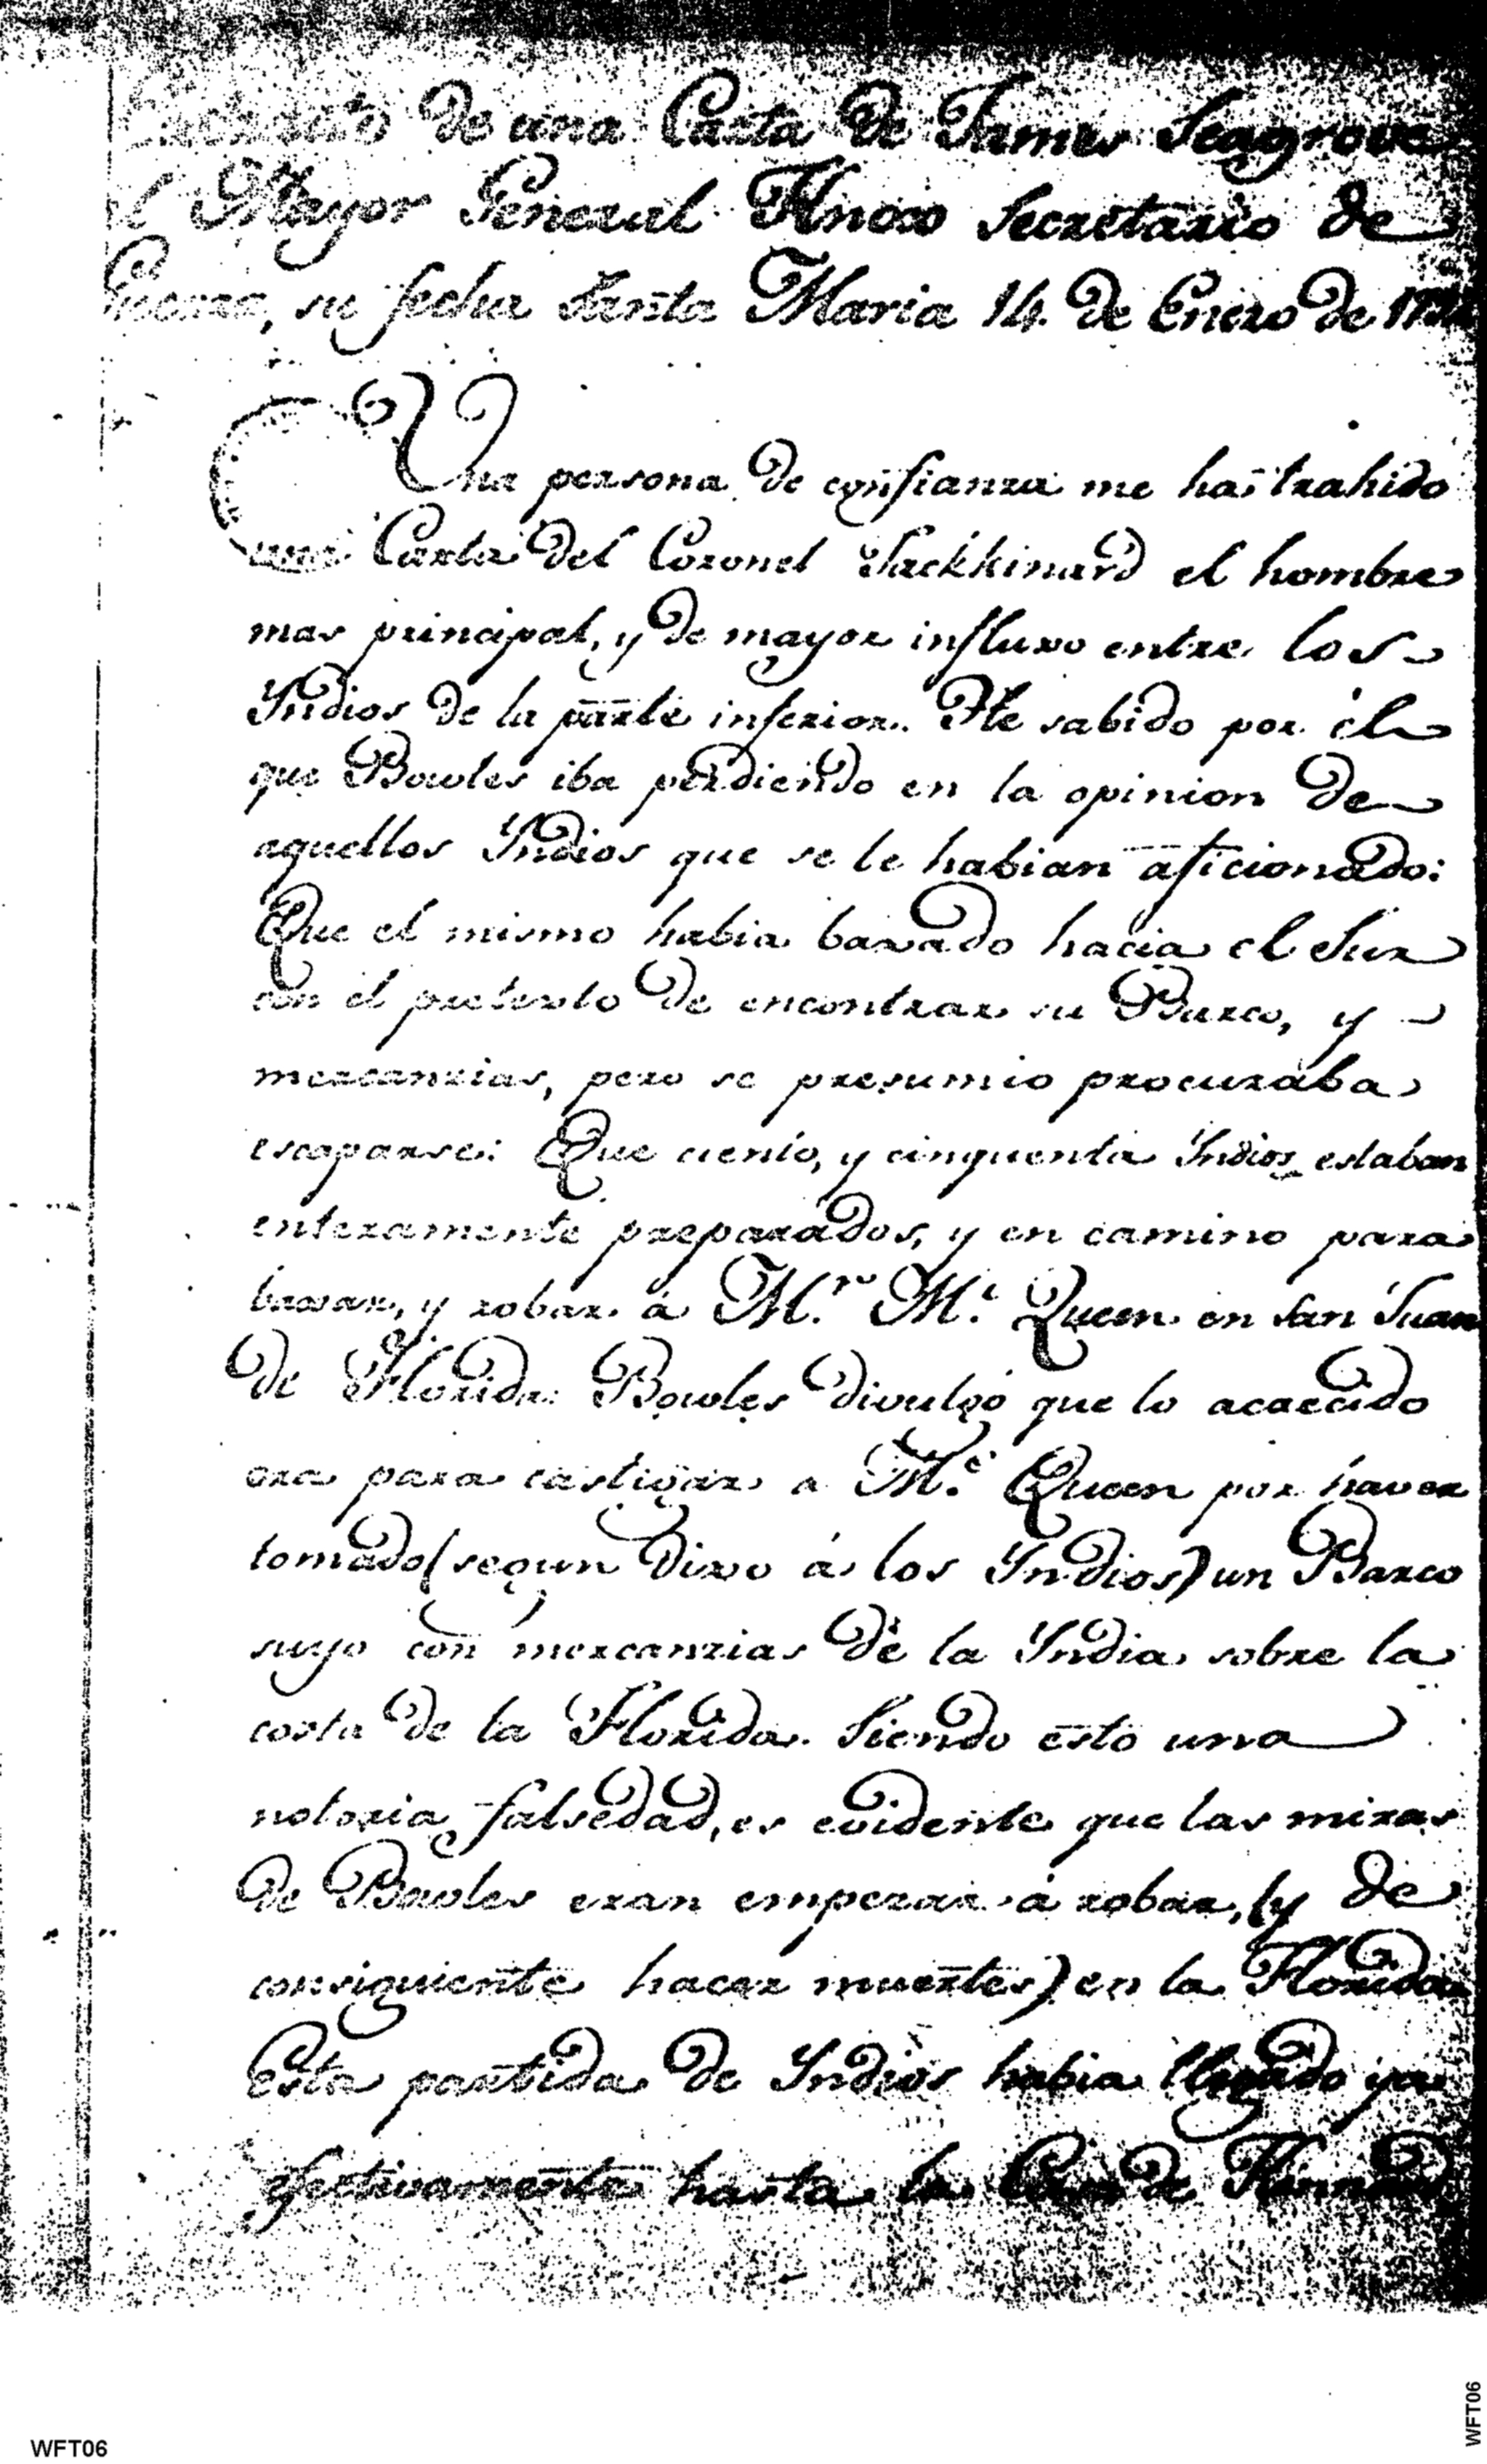 de una Carta de James Seagrove
l Mayor General Knox Secretario de
Guerra, su fecha Santa Maria 14. de Enero de
Una persona de confianza me ha trahido
una Carta del Coronel Jackkinard el hombre
mas principal, y de mayor influxo entre los
Yndios de la parte inferior. He sabido por él
que Bowles iba perdiendo en la opinion de
aquellos Yndios que se le habian aficionado:
Que el mismo habia baxado hacia el Sur
con el pretexto de encontrar su Barco, y
mercanzias, pero se presumio procuraba
escaparse: Que ciento, y cinquenta Yndios estaban
enteramente preparados, y en camino para
baxar, y robar á M.r M.c Queen en San Juan
de Florida: Bowles divulgó que lo acaecido
era para castigar a M.c Queen por haver
tomado (segun dixo á los Yndios) un Barco
suyo con mercanzias de la Yndia sobre la
costa de la Florida. Siendo esto una
notoria falsedad, es evidente que las miras
de Bowles eran empezar á robar, (y de
consiguiente hacer muertes) en la Florida
Esta partida de Yndios habia llegado ya
efectivamente hasta la Casa de Kinnard
WFT06
WFT06